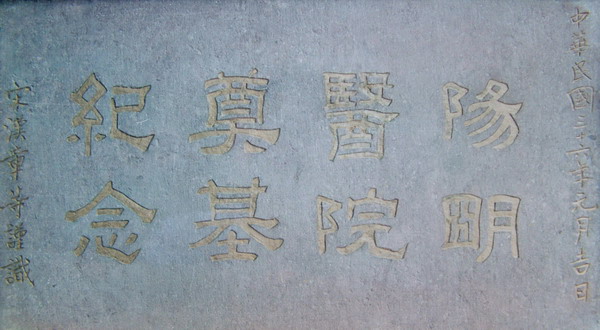 中華民國三十六年元月吉日
陽明
醫院
奠基
紀念
宋漢章等謹識